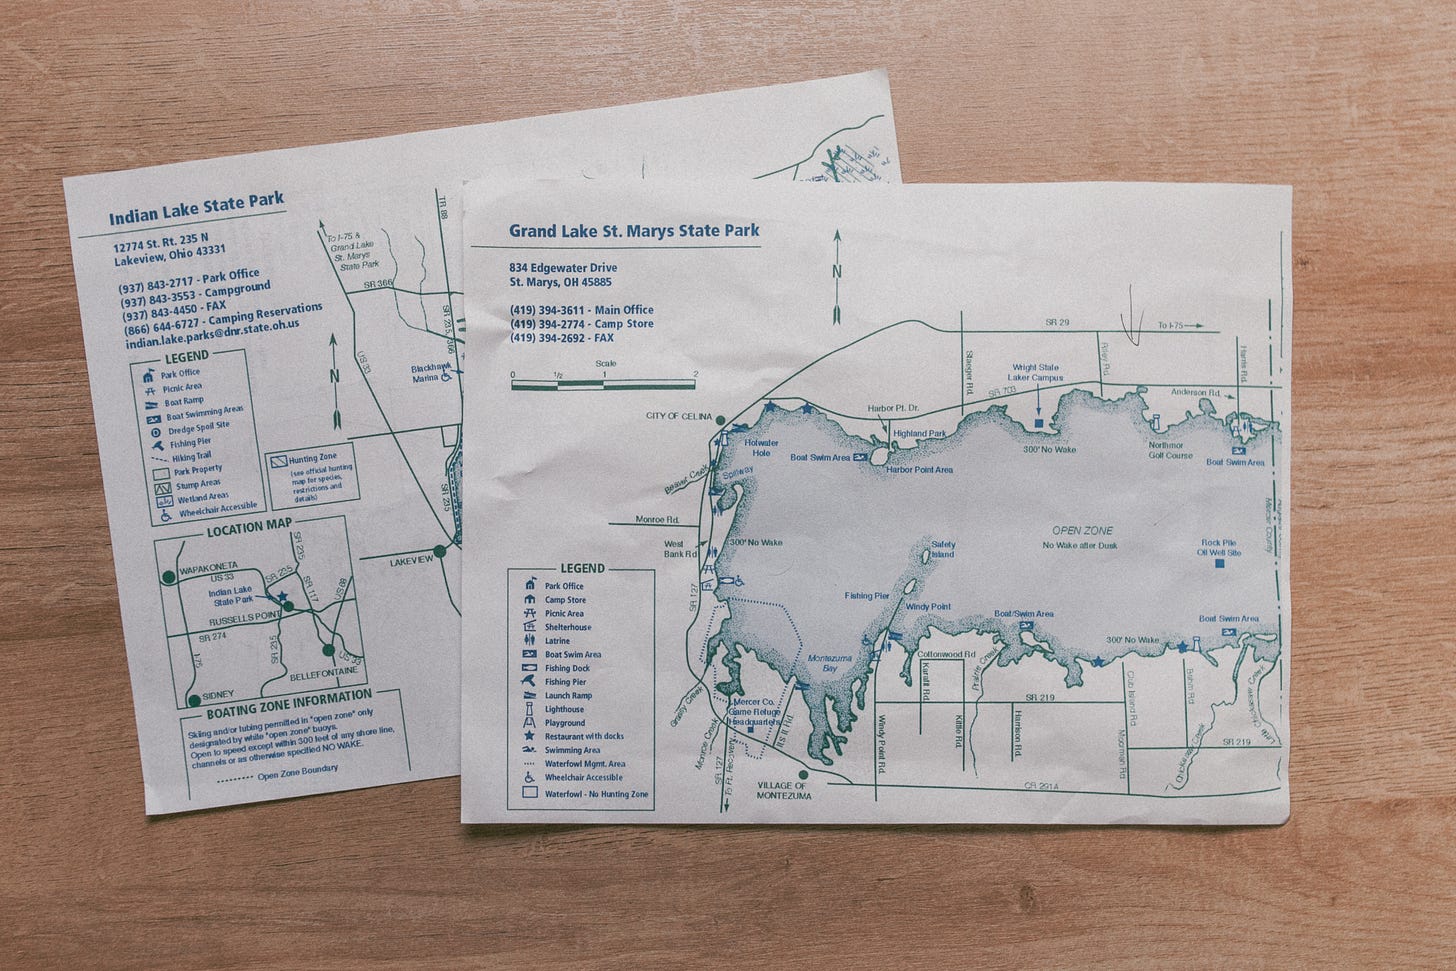 Indian Lake State Park
12774 St. Rt. 235 N
Lakeview, Ohio 43331
(937) 843-2717 - Park Office
(937) 843-3553 - Campground
(937) 843-4450 - FAX
(866) 644-6727 - Camping Reservations
indian.lake.parks@dnr.state.oh.us
LEGEND
Park Office
Picnic Area
Boat Ramp
Boat Swimming Areas
Dredge Spoil Site
Fishing Pier
Hiking Trail
Park Property
Stump Areas
Wetland Areas
Wheelchair Accessible
Hunting Zone
(see official hunting
map for species,
restrictions and
details)
To I-75 &
Grand Lake
St. Marys
State Park
SR 366
TR 88
US 33
SR 235
366
Blackhawk
Marina
N
SR 235
LAKEVIEW
LOCATION MAP
WAPAKONETA
US 33
SR 235
SR 235
Indian Lake
State Park
SR 117
US 68
RUSSELLS POINT
SR 274
SR 235
I-75
BELLEFONTAINE
SIDNEY
BOATING ZONE INFORMATION
Skiing and/or tubing permitted in "open zone" only
designated by white "open zone" buoys.
Open to speed except within 300 feet of any shore line,
channels or as otherwise specified NO WAKE.
Open Zone Boundary
Grand Lake St. Marys State Park
834 Edgewater Drive
St. Marys, OH 45885
(419) 394-3611 - Main Office
(419) 394-2774 - Camp Store
(419) 394-2692 - FAX
Scale
0 1/2 1 2
N
SR 29
To I-75
Staeger Rd.
Riley Rd.
Harris Rd.
Wright State
Laker Campus
SR 703
Anderson Rd.
CITY OF CELINA
Harbor Pt. Dr.
Highland Park
Hotwater
Hole
Boat Swim Area
Harbor Point Area
300' No Wake
Northmor
Golf Course
Boat Swim Area
Beaver Creek
Spillway
Monroe Rd.
West
Bank Rd
300' No Wake
OPEN ZONE
No Wake after Dusk
Mercer County
Rock Pile
Oil Well Site
Safety
Island
SR 127
Fishing Pier
Windy Point
Boat/Swim Area
Boat Swim Area
300' No Wake
Montezuma
Bay
Cottonwood Rd
Karafit Rd.
Prairie Creek
Club Island Rd.
Behm Rd.
SR 219
Grassy Creek
Mercer Co.
Game Refuge
Headquarters
Monroe Creek
Windy Point Rd.
Kittle Rd.
Harrison Rd.
Moorman Rd
Chickasaw Creek
SR 219
SR 127
To Ft. Recovery
VILLAGE OF
MONTEZUMA
CR 291A
LEGEND
Park Office
Camp Store
Picnic Area
Shelterhouse
Latrine
Boat Swim Area
Fishing Dock
Fishing Pier
Launch Ramp
Lighthouse
Playground
Restaurant with docks
Swimming Area
Waterfowl Mgmt. Area
Wheelchair Accessible
Waterfowl - No Hunting Zone